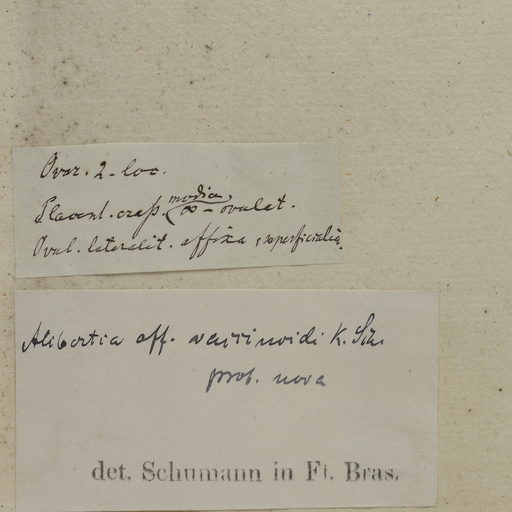 Ovar. 2-loc.
Placent. crass. modica, ∞-ovulat.
Ovul. lateralit. affixa, superficialia.
Alibertia aff. K. Sch.
prob. nova
det. Schumann in Fl. Bras.